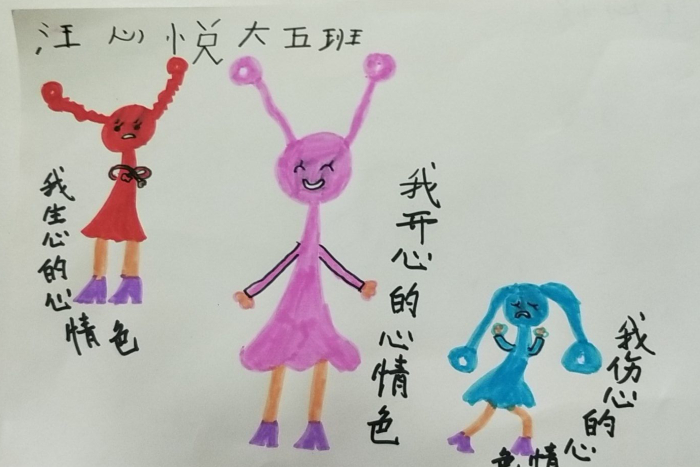 汪心悦大五班
我生心的心情色
我开心的心情色
我伤心的心情色